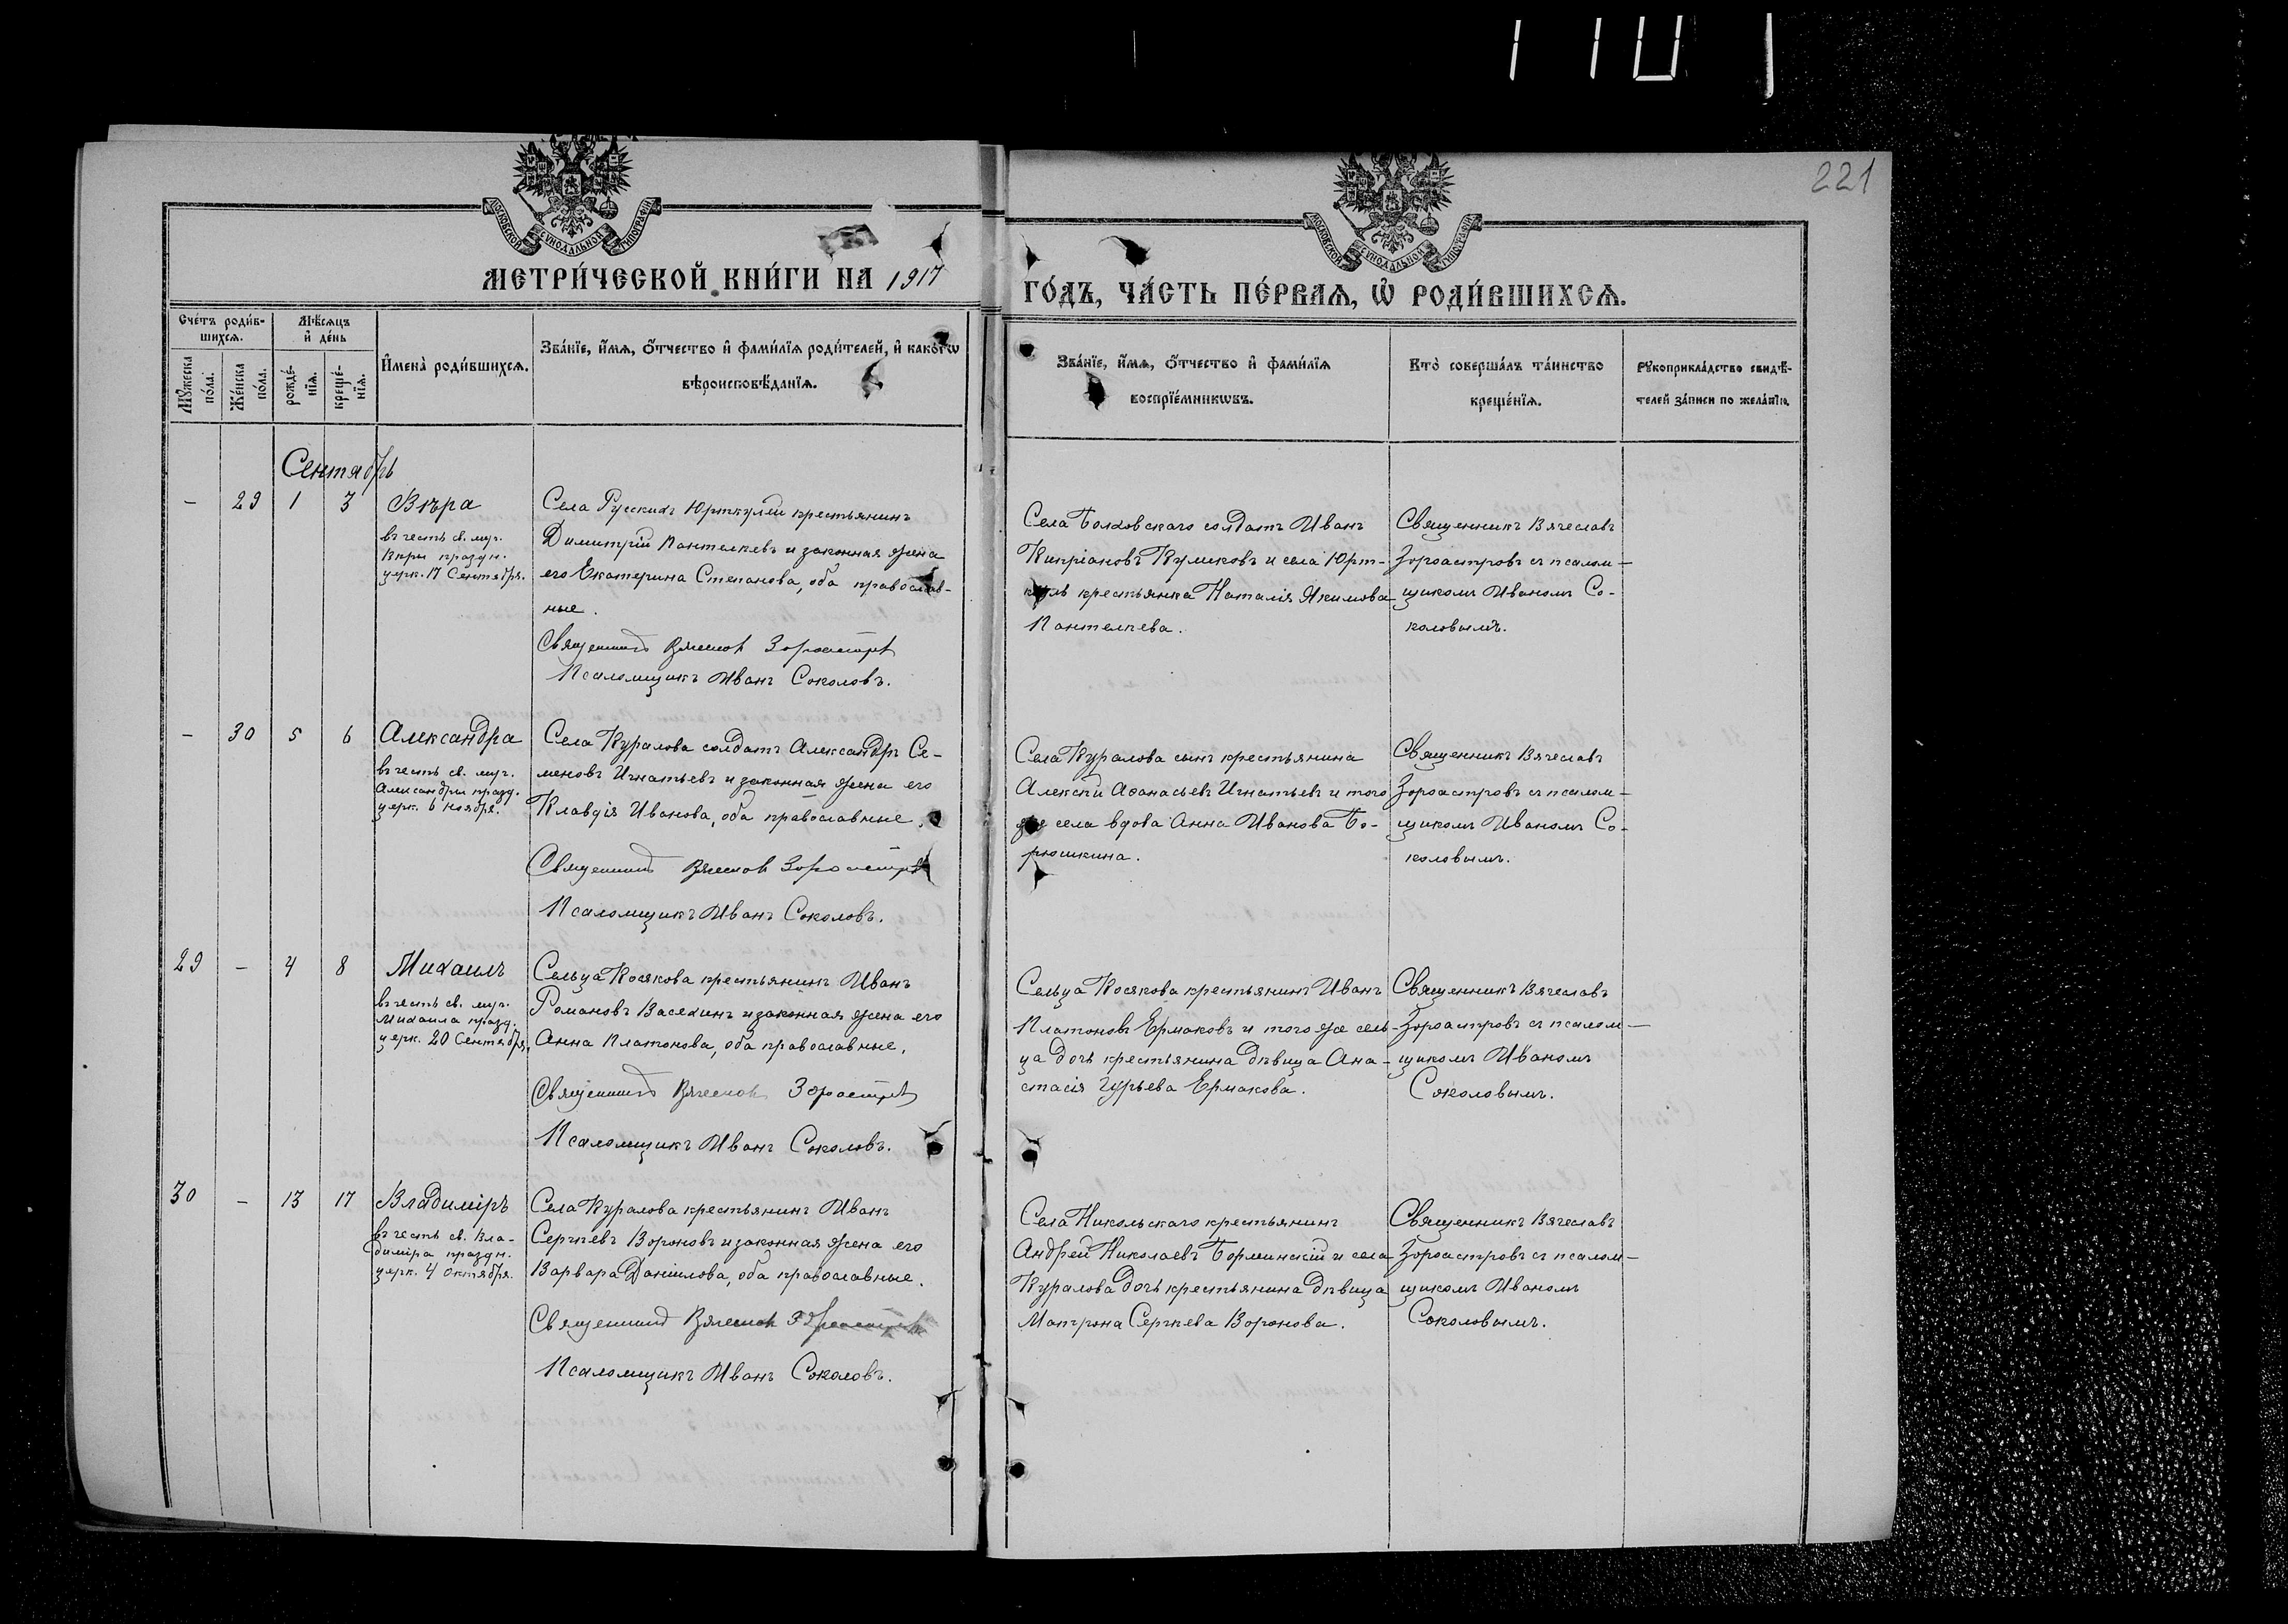 221
МОСКОВСКОЙ СѴНОДАЛЬНОЙ ТИПОГРАФІИ
МОСКОВСКОЙ СѴНОДАЛЬНОЙ ТИПОГРАФІИ
МЕТРИ́ЧЕСКОЙ КНИ́ГИ НА 1917
ГО́ДЪ, ЧА́СТЬ ПЕ́РВАЯ, Ѽ РОДИ́ВШИХСЯ.
Сче́тъ роди́в-
шихся.
Мѣ́сяцъ
и҆ де́нь
Мꙋ́жеска
по́ла.
Же́нска
по́ла.
рожде́-
нїя.
креще́-
нїя.
И҆мена̀ роди́вшихся.
Зва́нїе, и҆́мя, ѻ҆́тчество и҆ фами́лїя роди́телей, и҆ како́гѡ
вѣроисповѣ́данїя.
Зва́нїе, и҆́мя, ѻ҆́тчество и҆ фами́лїя
воспрїе́мникѡвъ.
Кто̀ соверша́лъ та́инство
креще́нїя.
Рꙋкоприкла́дство свидѣ́-
телей за́писи по жела́нїю.
Сентябрь
- 29 1 3 Вѣра
въ честь св. муч.
Вѣры праздн.
церк. 17 Сентября.
Села Русскихъ Юрткулей крестьянинъ
Димитрій Пантелѣевъ и законная жена
его Екатерина Степанова, оба православ-
ные.
Священникъ Вячеслав Зороастров
Псаломщикъ Иванъ Соколовъ.
Села Болховскаго солдатъ Иванъ
Кипріановъ Куликовъ и села Юрт-
куль крестьянка Наталія Якимова
Пантелѣева.
Священникъ Вячеславъ
Зороастровъ съ псалом-
щикомъ Иваномъ Со-
коловымъ.
- 30 5 6 Александра
въ честь св. муч.
Александры празд.
церк. 6 ноября.
Села Куралова солдатъ Александръ Се-
меновъ Игнатьевъ и законная жена его
Клавдія Иванова, оба православные.
Священникъ Вячеслав Зороастров
Псаломщикъ Иванъ Соколовъ.
Села Куралова сынъ крестьянина
Алексѣй Аѳанасьевъ Игнатьевъ и того
же села вдова Анна Иванова Бо-
рюшкина.
Священникъ Вячеславъ
Зороастровъ съ псалом-
щикомъ Иваномъ Со-
коловымъ.
29 - 4 8 Михаилъ
въ честь св. муч.
Михаила празд.
церк. 20 Сентября.
Сельца Косякова крестьянинъ Иванъ
Романовъ Васехинъ и законная жена его
Анна Платонова, оба православные.
Священникъ Вячеслав Зороастров
Псаломщикъ Иванъ Соколовъ.
Сельца Косякова крестьянинъ Иванъ
Платоновъ Ермаковъ и того же сель-
ца дочь крестьянина дѣвица Ана-
стасія Гурьева Ермакова.
Священникъ Вячеславъ
Зороастровъ съ псалом-
щикомъ Иваномъ
Соколовымъ.
30 - 13 17 Владиміръ
въ честь св. Вла-
диміра праздн.
церк. 4 октября.
Села Куралова крестьянинъ Иванъ
Сергѣевъ Вороновъ и законная жена его
Варвара Даніилова, оба православные.
Священникъ Вячеслав Зороастров
Псаломщикъ Иванъ Соколовъ.
Села Никольскаго крестьянинъ
Андрей Николаевъ Борминскій и села
Куралова дочь крестьянина дѣвица
Матрона Сергѣева Воронова.
Священникъ Вячеславъ
Зороастровъ съ псалом-
щикомъ Иваномъ
Соколовымъ.